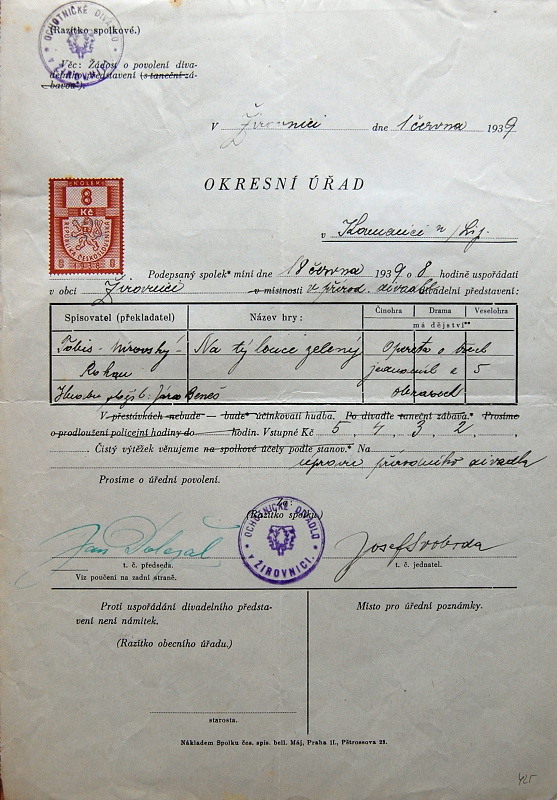 OCHOTNICKÉ DIVADLO
V ŽIROVNICI.
(Razítko spolkové.)
Věc: Žádost o povolení diva-
delního představení (s taneční zá-
bavou*).
V Žirovnici dne 1 června 1939
OKRESNÍ ÚŘAD
KOLEK
8
Kč
REPUBLIKA ČESKOSLOVENSKÁ
8 1938 8
v Kamenici n/Lip.
Podepsaný spolek* míní dne 18 června 1939 o 8 hodině uspořádati
v obci Žirovnici v místnosti v přírod. divadle divadelní představení:
Spisovatel (překladatel) Název hry: Činohra Drama Veselohra
má dějství**
Tobis - Mírovský - Na tý louce zelený Opereta o třech
Rohan jednáních a 5
Hudbu složil: Jára Beneš obrazech
V přestávkách nebude — bude* účinkovati hudba. Po divadle taneční zábava.* Prosíme
o prodloužení policejní hodiny do hodin. Vstupné Kč 5, 4, 3, 2,
Čistý výtěžek věnujeme na spolkové účely podle stanov.* Na
úpravu přírodního divadla
Prosíme o úřední povolení.
Za:
(Razítko spolku)
OCHOTNICKÉ DIVADLO
V ŽIROVNICI.
Jan Doležal Josef Svoboda
t. č. předseda. t. č. jednatel.
Viz poučení na zadní straně.
Proti uspořádání divadelního předsta-
vení není námitek.
(Razítko obecního úřadu.)
Místo pro úřední poznámky.
starosta.
Nákladem Spolku čes. spis. bell. Máj, Praha II., Pštrossova 23.
425